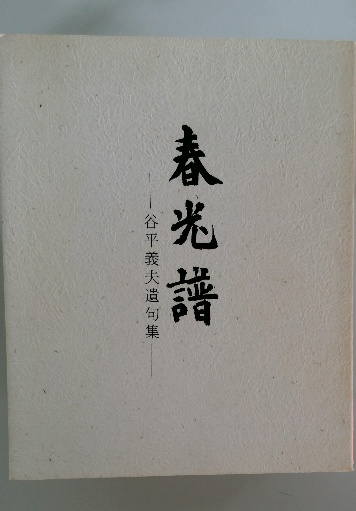 春光譜
——谷平義夫遺句集——